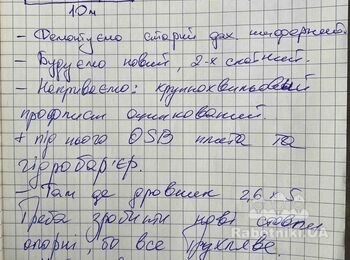 10 м
- Демонтуємо старий дах шиферний.
- Будуємо новий, 2-х скатний.
- Накриваємо: крупнохвильовый
профлист оцинкований.
+ під нього OSB плита та
гідробар'єр.
- Там де дровник 2,6 x 5
Треба зробити нові стовпи
опорні, бо все трухляве.
Rabotniki.UA